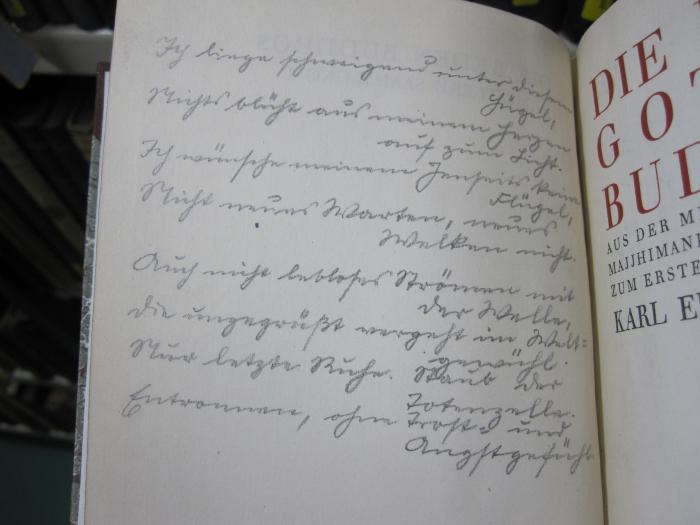 Ich liege schweigend unter diesem
Hügel,
Nichts blüht aus meinem Herzen
auf zum Licht.
Ich wünsche meinem Jenseits keine
Flügel,
Nicht neues Warten, neues
Welken nicht.
Auch nicht lebloses Strömen mit
der Welle,
Die ungegrüßt vergeht im Welt=
gewühl.
Nur letzte Ruhe. Staub der
Totenzelle.
Entronnen, ohne Trost= und
Angstgefühl.
DIE
GO
BUD
AUS DER M
MAJJHIMANI
ZUM ERSTE
KARL E